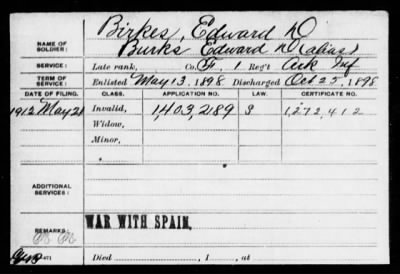 Birkes, Edward D
NAME OF SOLDIER: Burks Edward D (alias)
SERVICE: Late rank, Co. F, 1 Reg't Ark Inf
TERM OF SERVICE: Enlisted May 13, 1898 Discharged Oct 25, 1898
DATE OF FILING. CLASS. APPLICATION NO. LAW. CERTIFICATE NO.
1912 May 21 Invalid, 1,403,289 G 1,272,412
Widow,
Minor,
ADDITIONAL SERVICES:
WAR WITH SPAIN.
REMARKS:
Died , 1 , at